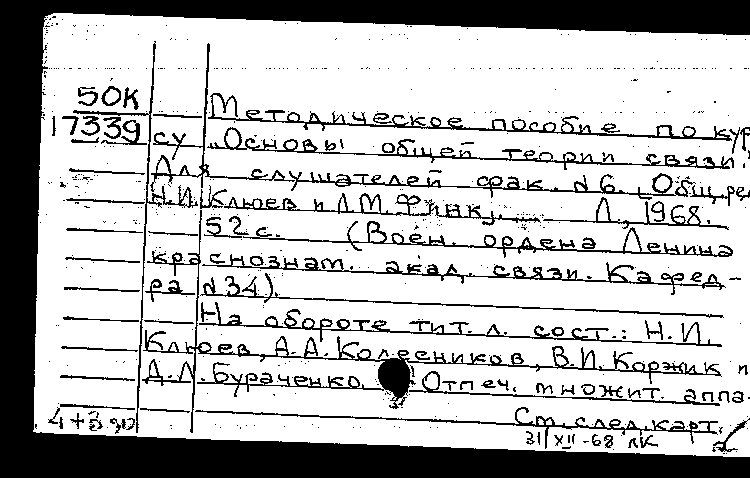 50К
17339
Методическое пособие по кур
су „Основы общей теории связи.
Для слушателей фак. №6. [Общ. ред.
Н.И. Клюев и Л.М. Финк]. Л., 1968.
52 с. (Воен. ордена Ленина
краснознам. акад. связи. Кафед-
ра №34).
На обороте тит. л. сост.: Н.И.
Клюев, А.А. Колесников, В.И. Коржик и
Д.Л. Бураченко. Отпеч. множит. аппа-
См. след. карт.
4+3
31/XII-68